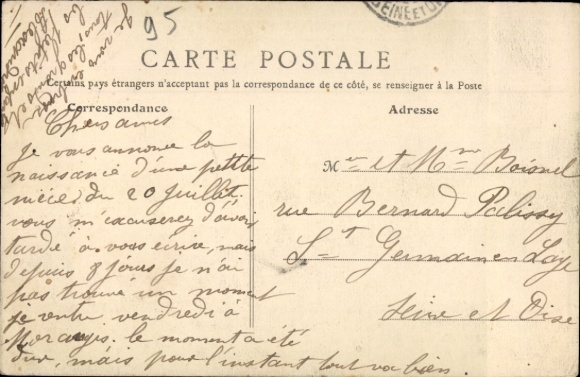 95
SEINE ET OI
CARTE POSTALE
Certains pays étrangers n'acceptent pas la correspondance de ce côté, se renseigner à la Poste
Correspondance
Chers amis
je vous annonce la
naissance d'une petite
nièce du 20 juillet.
vous m'excuserez d'avoir
tardé à vous écrire, mais
depuis 8 jours je n'ai
pas trouvé un moment
je rentre vendredi à
Morangis. le moment a été
dur, mais pour l'instant tout va bien.
je vous
tous, les grands et
les petits
Adresse
Mr et Mme Boisnel
rue Bernard Palissy
St Germain en Laye
Seine et Oise